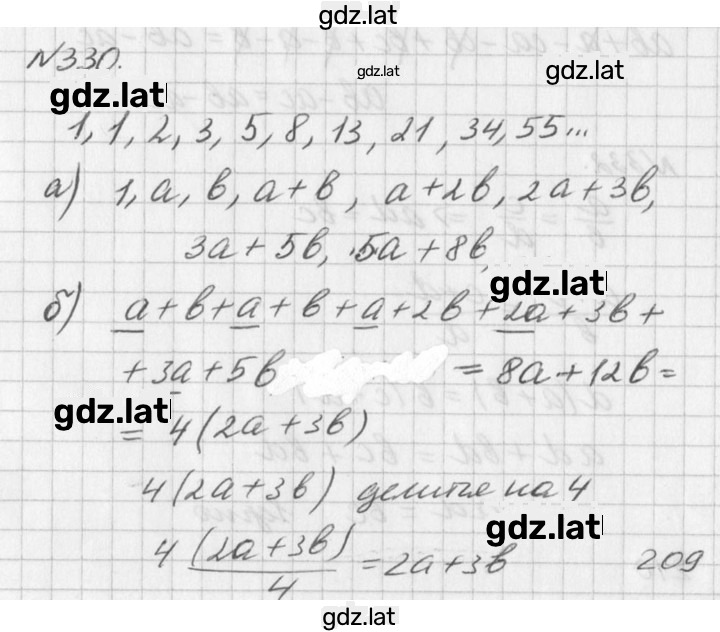 gdz.lat
N330.
gdz.lat
gdz.lat
gdz.lat
1, 1, 2, 3, 5, 8, 13, 21, 34, 55...
а) 1, a, b, a+b, a+2b, 2a+3b,
3a+5b, 5a+8b
gdz.lat
б) a+b+a+b+a+2b+2a+3b+
+3a+5b = 8a+12b=
gdz.lat
= 4(2a+3b)
4(2a+3b) делится на 4
gdz.lat
4 (2a+3b)/4 = 2a+3b
209
gdz.lat